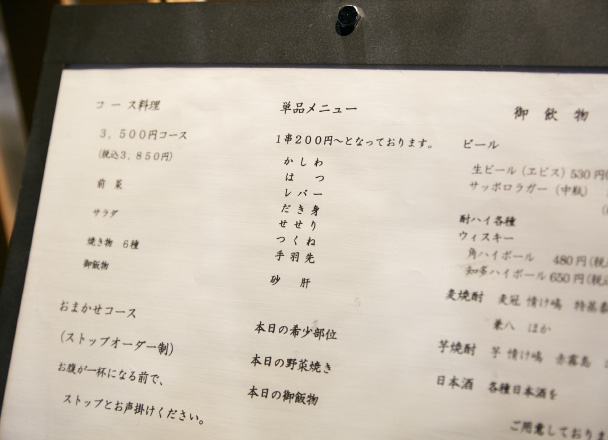 コース料理
3,500円コース
(税込3,850円)
前菜
サラダ
焼き物 6種
御飯物
おまかせコース
(ストップオーダー制)
お腹が一杯になる前で、
ストップとお声掛けください。
単品メニュー
1串200円〜となっております。
かしわ
はつ
レバー
だき身
せせり
つくね
手羽先
砂肝
本日の希少部位
本日の野菜焼き
本日の御飯物
御飲物
ビール
生ビール(ヱビス)530円
サッポロラガー(中瓶)
酎ハイ各種
ウィスキー
角ハイボール 480円(税
知多ハイボール650円(税
麦焼酎 麦冠 情け嶋 特蒸泰
兼八 ほか
芋焼酎 芋 情け嶋 赤霧島
日本酒 各種日本酒を
ご用意しており